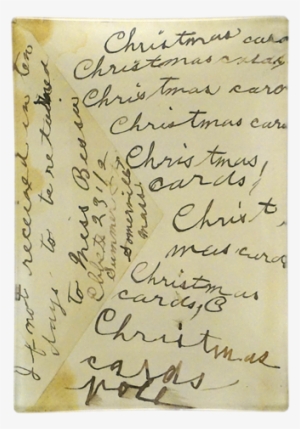 Christmas card
Christmas
Christmas card
Christmas card
Christmas
cards!
Christ
mas cards
Christmas
cards, B
Christmas
cards
If not received in ten
days to be returned
to Miss Bessie
23 1/2
Summer St
Somerville
Mass